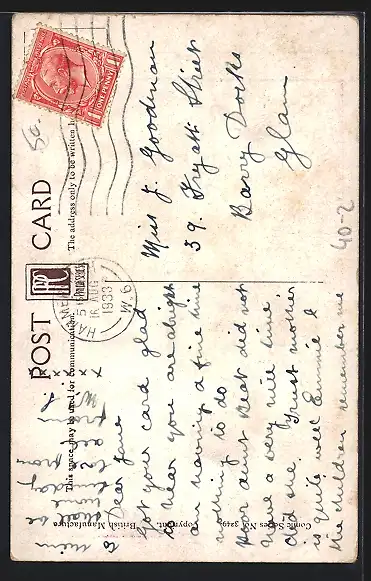 POST CARD
This space may be used for communication.
The address only to be written here
ONE PENNY
HAMMERSMITH
16 AUG
1933
W.6
Dear Jane
Got your card glad
to hear you are alright
am having a fine time
nothing to do
Poor aunt Beat did not
have a very nice time
did she. Trust mother
is quite well Emmie &
the children remember me
Miss J. Goodman
39. Fryatt Street
Barry Docks
Glam
40-2
Comic Series No. 3249.
Copyright.
British Manufacture